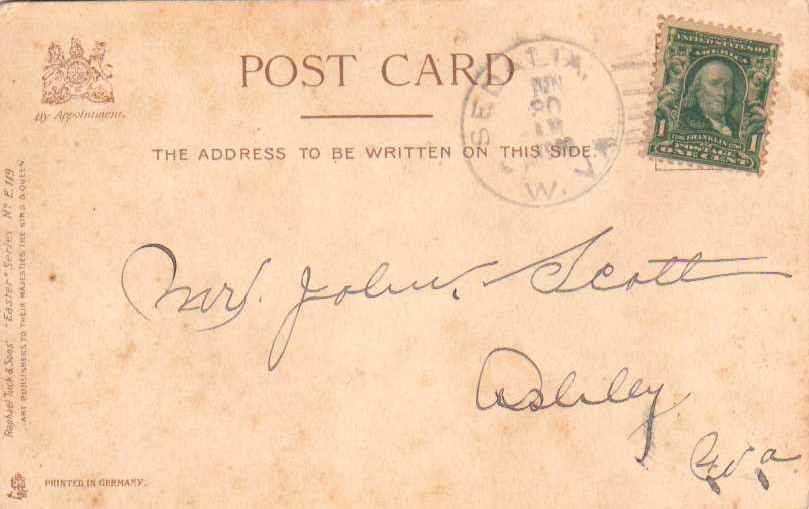 By Appointment.
POST CARD
THE ADDRESS TO BE WRITTEN ON THIS SIDE.
SEDALIA,
W. VA
UNITED STATES OF
AMERICA
1 FRANKLIN 1
POSTAGE
ONE CENT
Mrs. John Scott
Ashley
W Va
Raphael Tuck & Sons' "Easter" Series No E.119
ART PUBLISHERS TO THEIR MAJESTIES THE KING & QUEEN
PRINTED IN GERMANY.